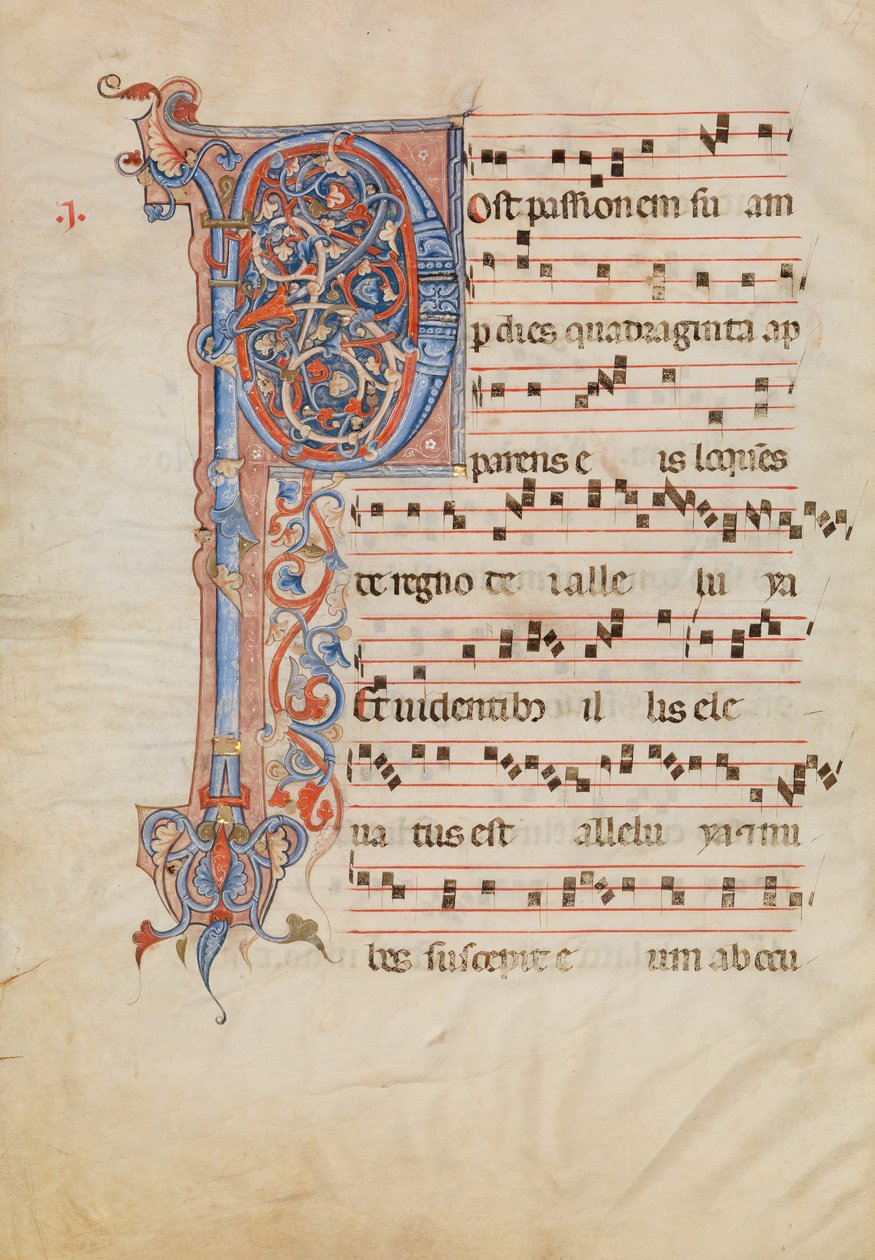 .J.
4
Post passionem su am
p dies quadraginta ap
parens e is loquẽs
de regno de i alle lu ya
Et uidentibꝰ il lis ele
ua tus est allelu ya ⁊ nu
bes suscepit e um ab ocu